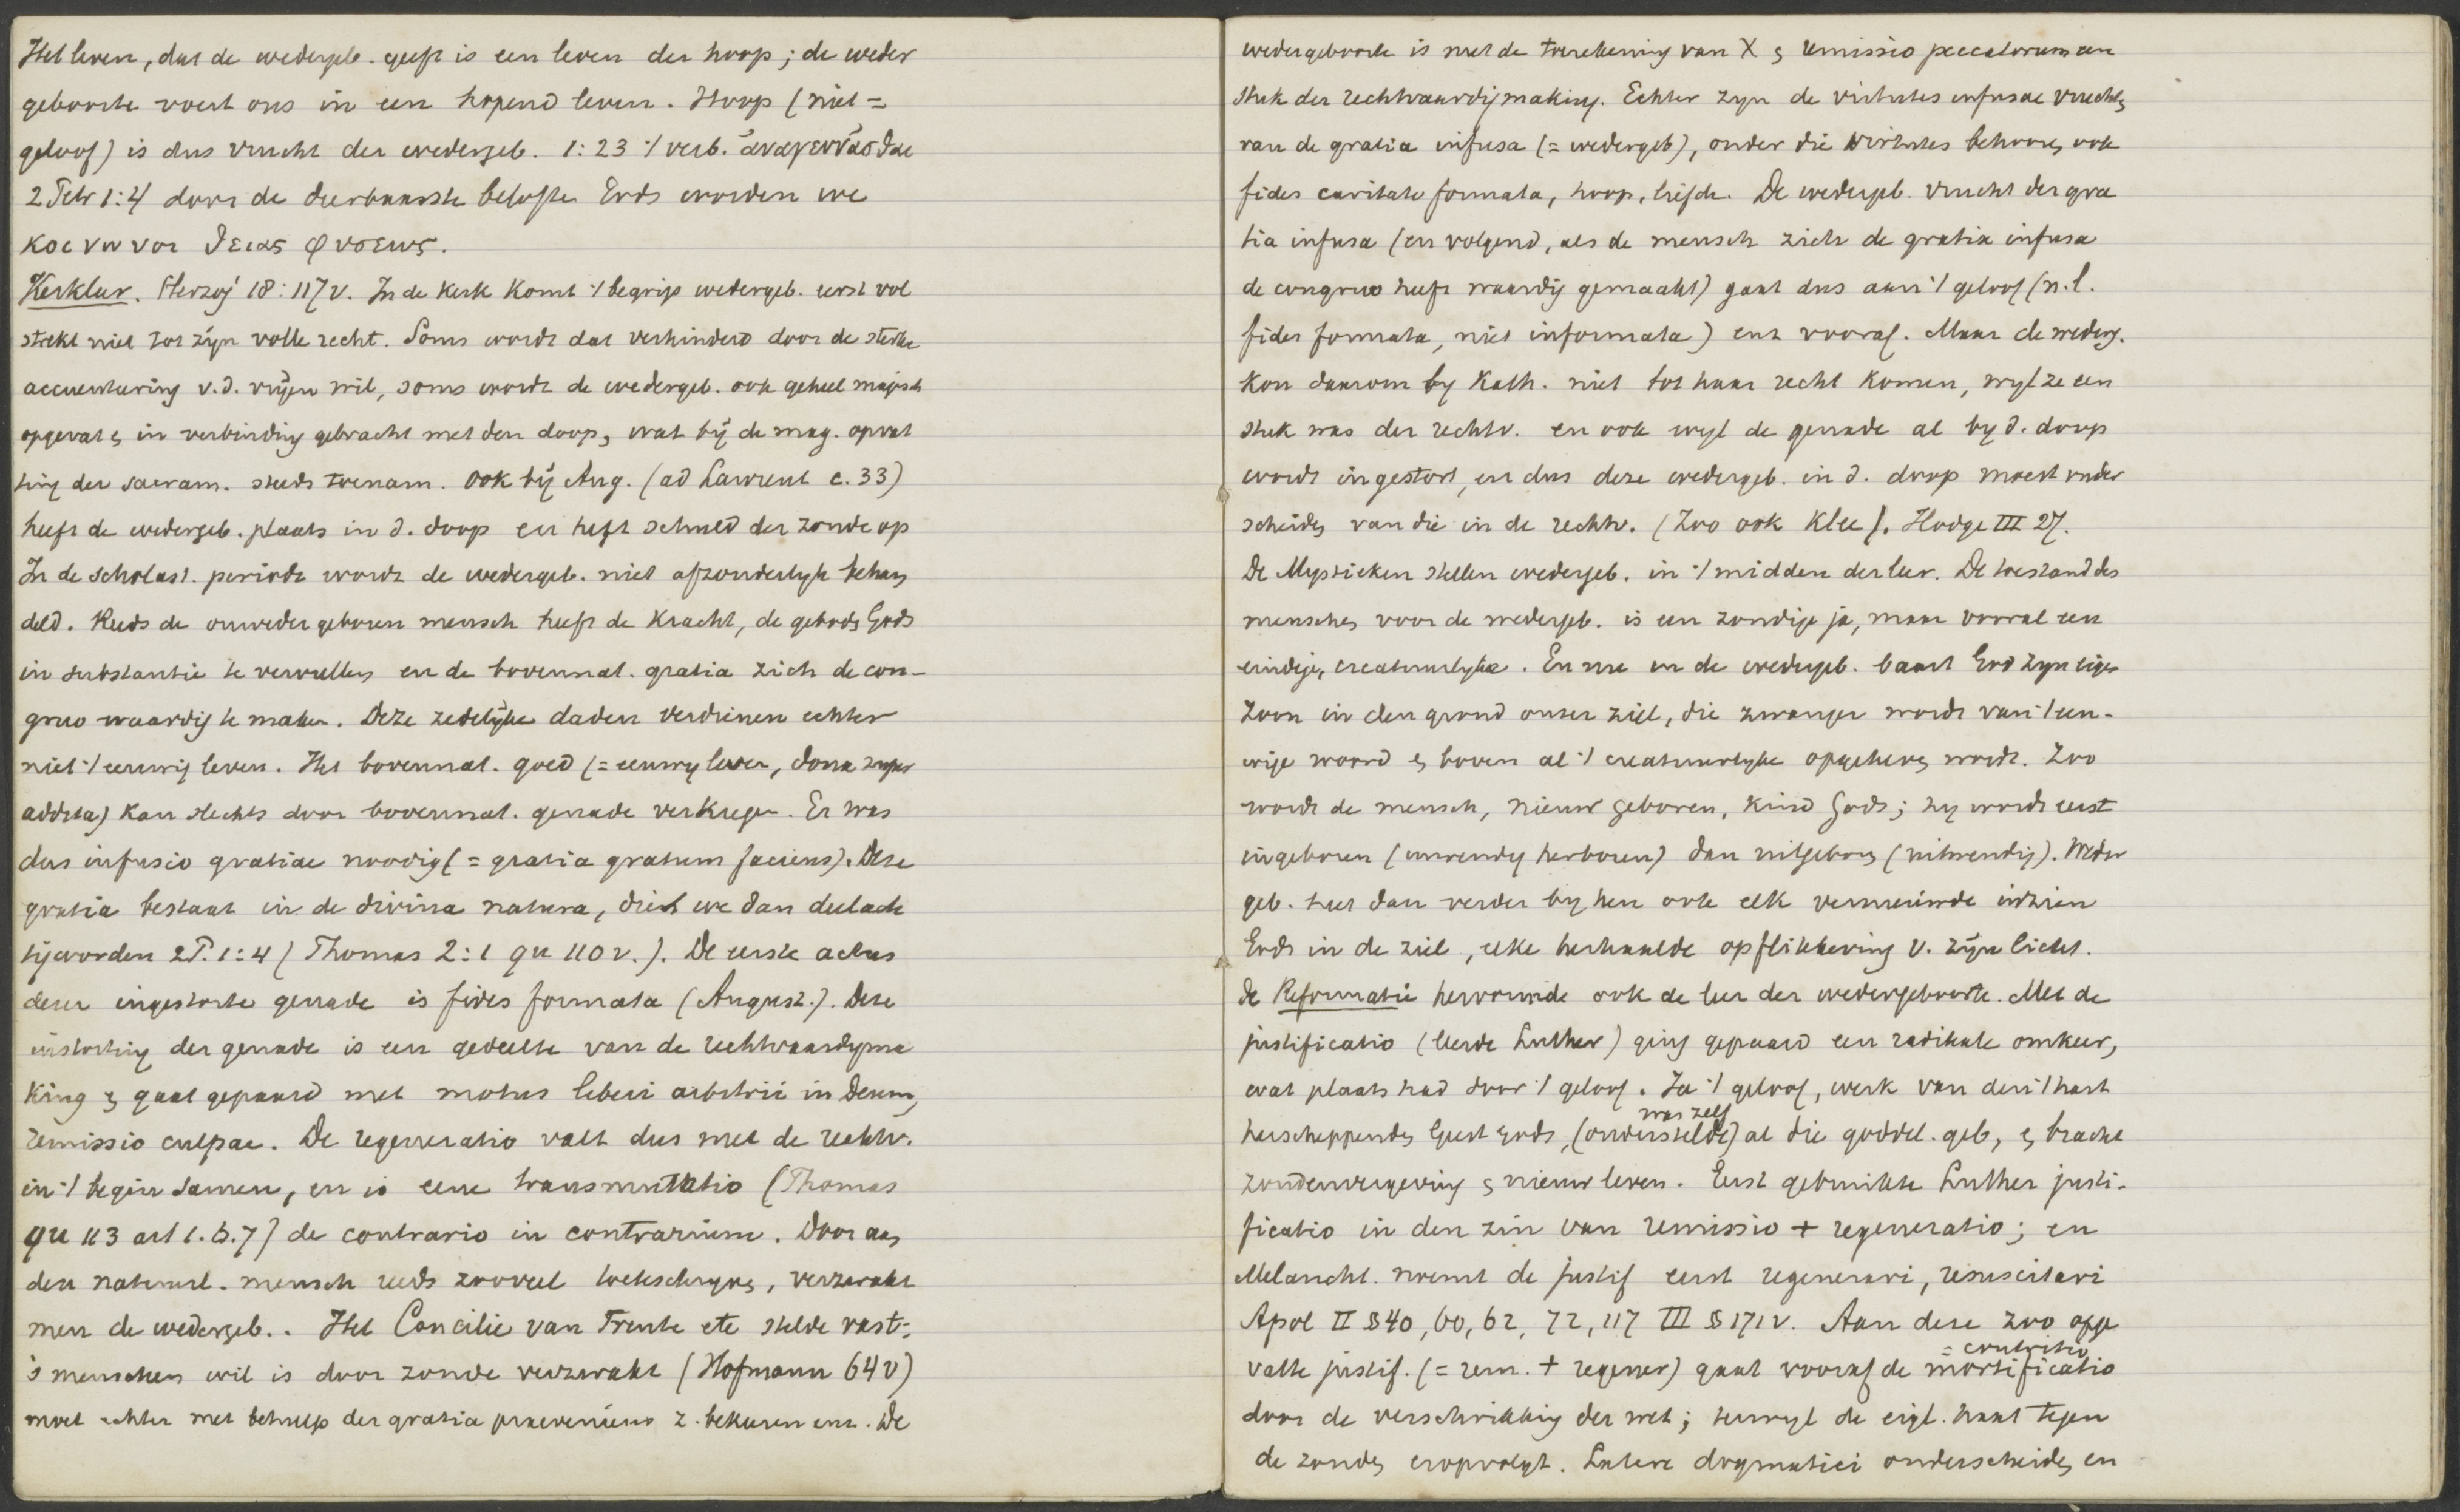 Het leven, dat de wedergeb. geeft is een leven der hoop; de weder
geboorte voert ons in een hopend leven. Hoop (niet =
geloof) is dus vrucht der wedergeb. 1:23 't verb. ἀναγεννᾶσθαι
2 Petr 1:4 door de dierbaarste belofte Gods worden we
κοινωνοι θειας φυσεως.
Kerkleer. Herzog² 18:117v. In de kerk komt 't begrip wedergeb. eerst vol
strekt niet tot zijn volle recht. Soms wordt dat verhinderd door de sterke
accentueering v.d. vrijen wil, soms wordt de wedergeb. ook geheel magisch
opgevat en in verbinding gebracht met den doop, wat bij de mag. opvat
ting der sacram. steeds toenam. Ook bij Aug. (ad Laurent c. 33)
heeft de wedergeb. plaats in d. doop en heft schuld der zonde op
In de scholast. periode wordt de wedergeb. niet afzonderlyk behan
deld. Reeds de onwedergeboren mensch heeft de kracht, de geboden Gods
in substantie te vervullen en de bovennat. gratia zich de con-
gruo waardig te maken. Deze zedelijke daden verdienen echter
niet 't eeuwig leven. Het bovennat. goed (= eeuwig leven, dona super
addita) kan slechts door bovennat. genade verkregen. Er was
dus infusio gratiae noodig (= gratia gratum faciens). Deze
gratia bestaat in de divina natura, die we dan deelach
tig worden 2P. 1:4 (Thomas 2:1 qu 110 v.). De eerste actus
dezer ingestorte genade is fides formata (August.). Deze
instorting der genade is een gedeelte van de rechtvaardigma
king en gaat gepaard met motus liberi arbitrii in Deum,
remissio culpae. De regeneratio valt dus met de rechtv.
in 't begin samen, en is eene transmutatio (Thomas
qu 113 art 1. 5. 7) de contrario in contrarium. Door aan
den natuurl. mensch reeds zooveel toeteschryven, verzwakt
men de wedergeb.. Het Concilie van Trente etc stelde vast:,
's menschen wil is door zonde verzwakt (Hofmann 64 v)
moet echter met behulp der gratia praeveniens z. bekeeren enz. De
wedergeboorte is met de toerekening van X en remissio peccatorum een
stuk der rechtvaardigmaking. Echter zyn de virtutes infusae vruchten
van de gratia infusa (= wedergeb), onder die virtutes behooren ook
fides caritate formata, hoop, liefde. De wedergeb. vrucht der gra
tia infusa (en volgend, als de mensch zich de gratia infusa
de congruo heeft waardig gemaakt) gaat dus aan 't geloof (n.l.
fides formata, niet informata) enz vooraf. Maar de wederg.
kon daarom by Kath. niet tot haar recht komen, wyl ze een
stuk was der rechtv. en ook wyl de genade al by d. doop
wordt ingestort, en dus deze wedergeb. in d. doop moest onder
scheiden van die in de rechtv. (Zoo ook Klee). Hodge III 27.
De Mystieken stellen wedergeb. in 't midden der leer. De toestand des
menschen voor de wedergeb. is een zondige ja, maar vooral een
eindige, creatuurlyke. En nu in de wedergeb. baart God zyn eigen
Zoon in den grond onzer ziel, die zwanger wordt van 't eeu-
wige woord en boven al 't creatuurlyke opgeheven wordt. Zoo
wordt de mensch, nieuw geboren, kind Gods; hy wordt eerst
ingeboren (inwendig herboren) dan uitgeboren (uitwendig). Weder
geb. heet dan verder by hen ook elk vernieuwde inzien
Gods in de ziel, elke herhaalde opflikkering v. zijn licht.
De Reformatie hervormde ook de leer der wedergeboorte. Met de
justificatio (leerde Luther) ging gepaard een radikale omkeer,
wat plaats had door 't geloof. Ja 't geloof, werk van den 't hart
was zelf
herscheppenden Geest Gods, (onderstelde) al die goddel. geb, en bracht
zondenvergeving en nieuw leven. Eerst gebruikte Luther justi-
ficatio in den zin van remissio + regeneratio; en
Melancht. noemt de justif eerst regenerari, resuscitari
Apol II § 40, 60, 62, 72, 117 III § 171 v. Aan deze zoo opge
= contritio
vatte justif. (= rem. + regener) gaat vooraf de mortificatio
door de verschrikking der wet; terwyl de eigl. haat tegen
de zonden eropvolgt. Latere dogmatici onderscheiden en